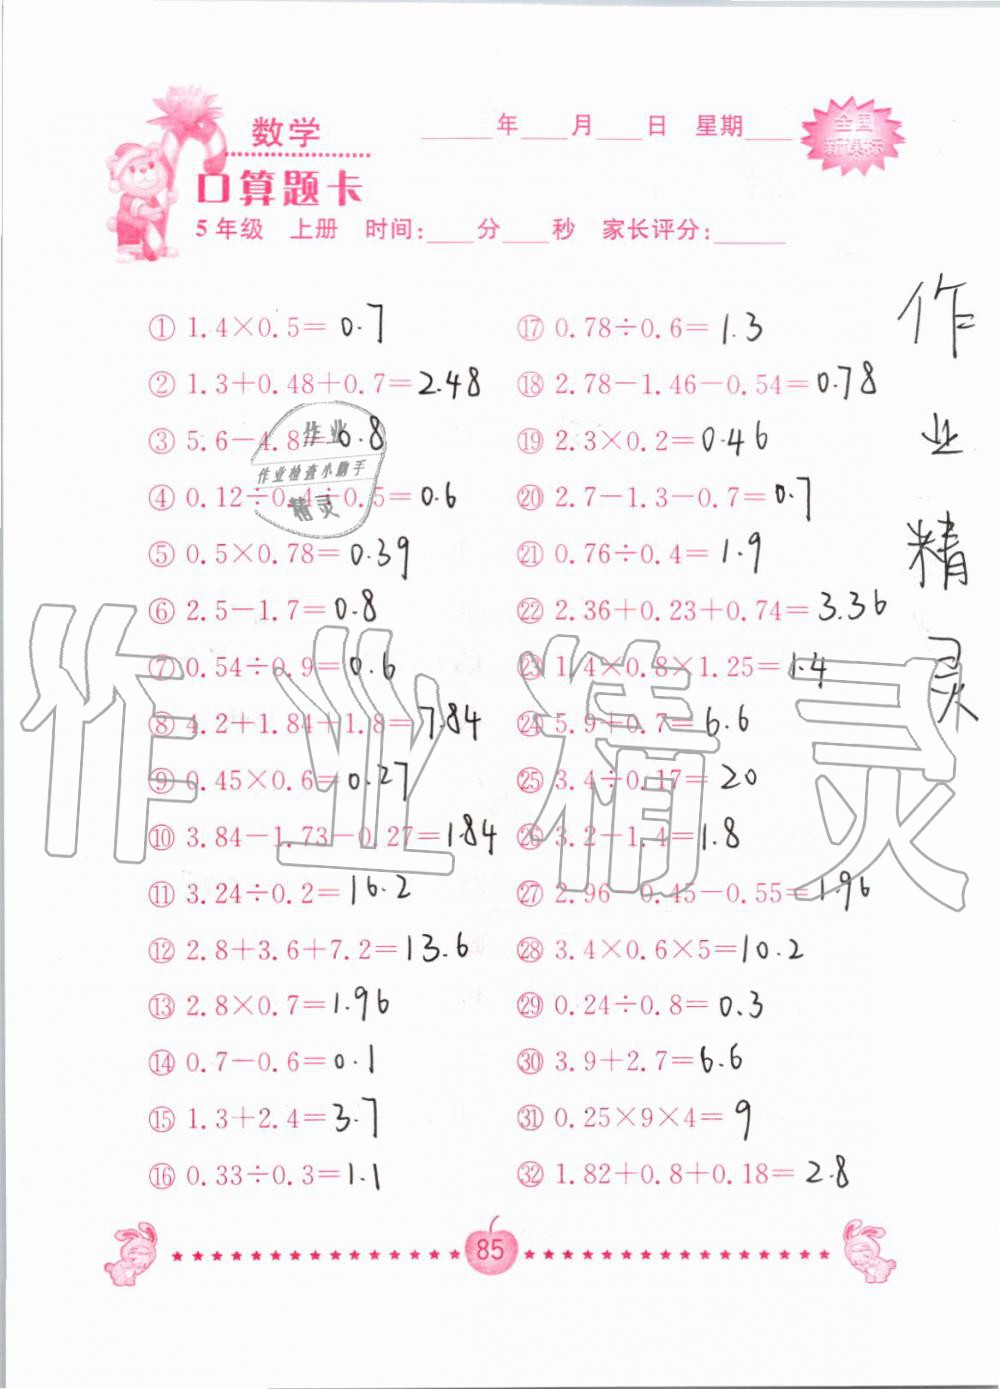 数学
____年___月___日 星期___
全国
新课标
口算题卡
5年级 上册 时间:___分___秒 家长评分:_____
① 1.4×0.5=0.7
② 1.3+0.48+0.7=2.48
③ 5.6-4.8=0.8
④ 0.12÷0.4÷0.5=0.6
⑤ 0.5×0.78=0.39
⑥ 2.5-1.7=0.8
⑦ 0.54÷0.9=0.6
⑧ 4.2+1.84+1.8=7.84
⑨ 0.45×0.6=0.27
⑩ 3.84-1.73-0.27=1.84
⑪ 3.24÷0.2=16.2
⑫ 2.8+3.6+7.2=13.6
⑬ 2.8×0.7=1.96
⑭ 0.7-0.6=0.1
⑮ 1.3+2.4=3.7
⑯ 0.33÷0.3=1.1
⑰ 0.78÷0.6=1.3
⑱ 2.78-1.46-0.54=0.78
⑲ 2.3×0.2=0.46
⑳ 2.7-1.3-0.7=0.7
㉑ 0.76÷0.4=1.9
㉒ 2.36+0.23+0.74=3.36
㉓ 1.4×0.8×1.25=1.4
㉔ 5.9+0.7=6.6
㉕ 3.4÷0.17=20
㉖ 3.2-1.4=1.8
㉗ 2.96-0.45-0.55=1.96
㉘ 3.4×0.6×5=10.2
㉙ 0.24÷0.8=0.3
㉚ 3.9+2.7=6.6
㉛ 0.25×9×4=9
㉜ 1.82+0.8+0.18=2.8
作业
作业检查小助手
精灵
作业精灵
作
业
精
灵
85